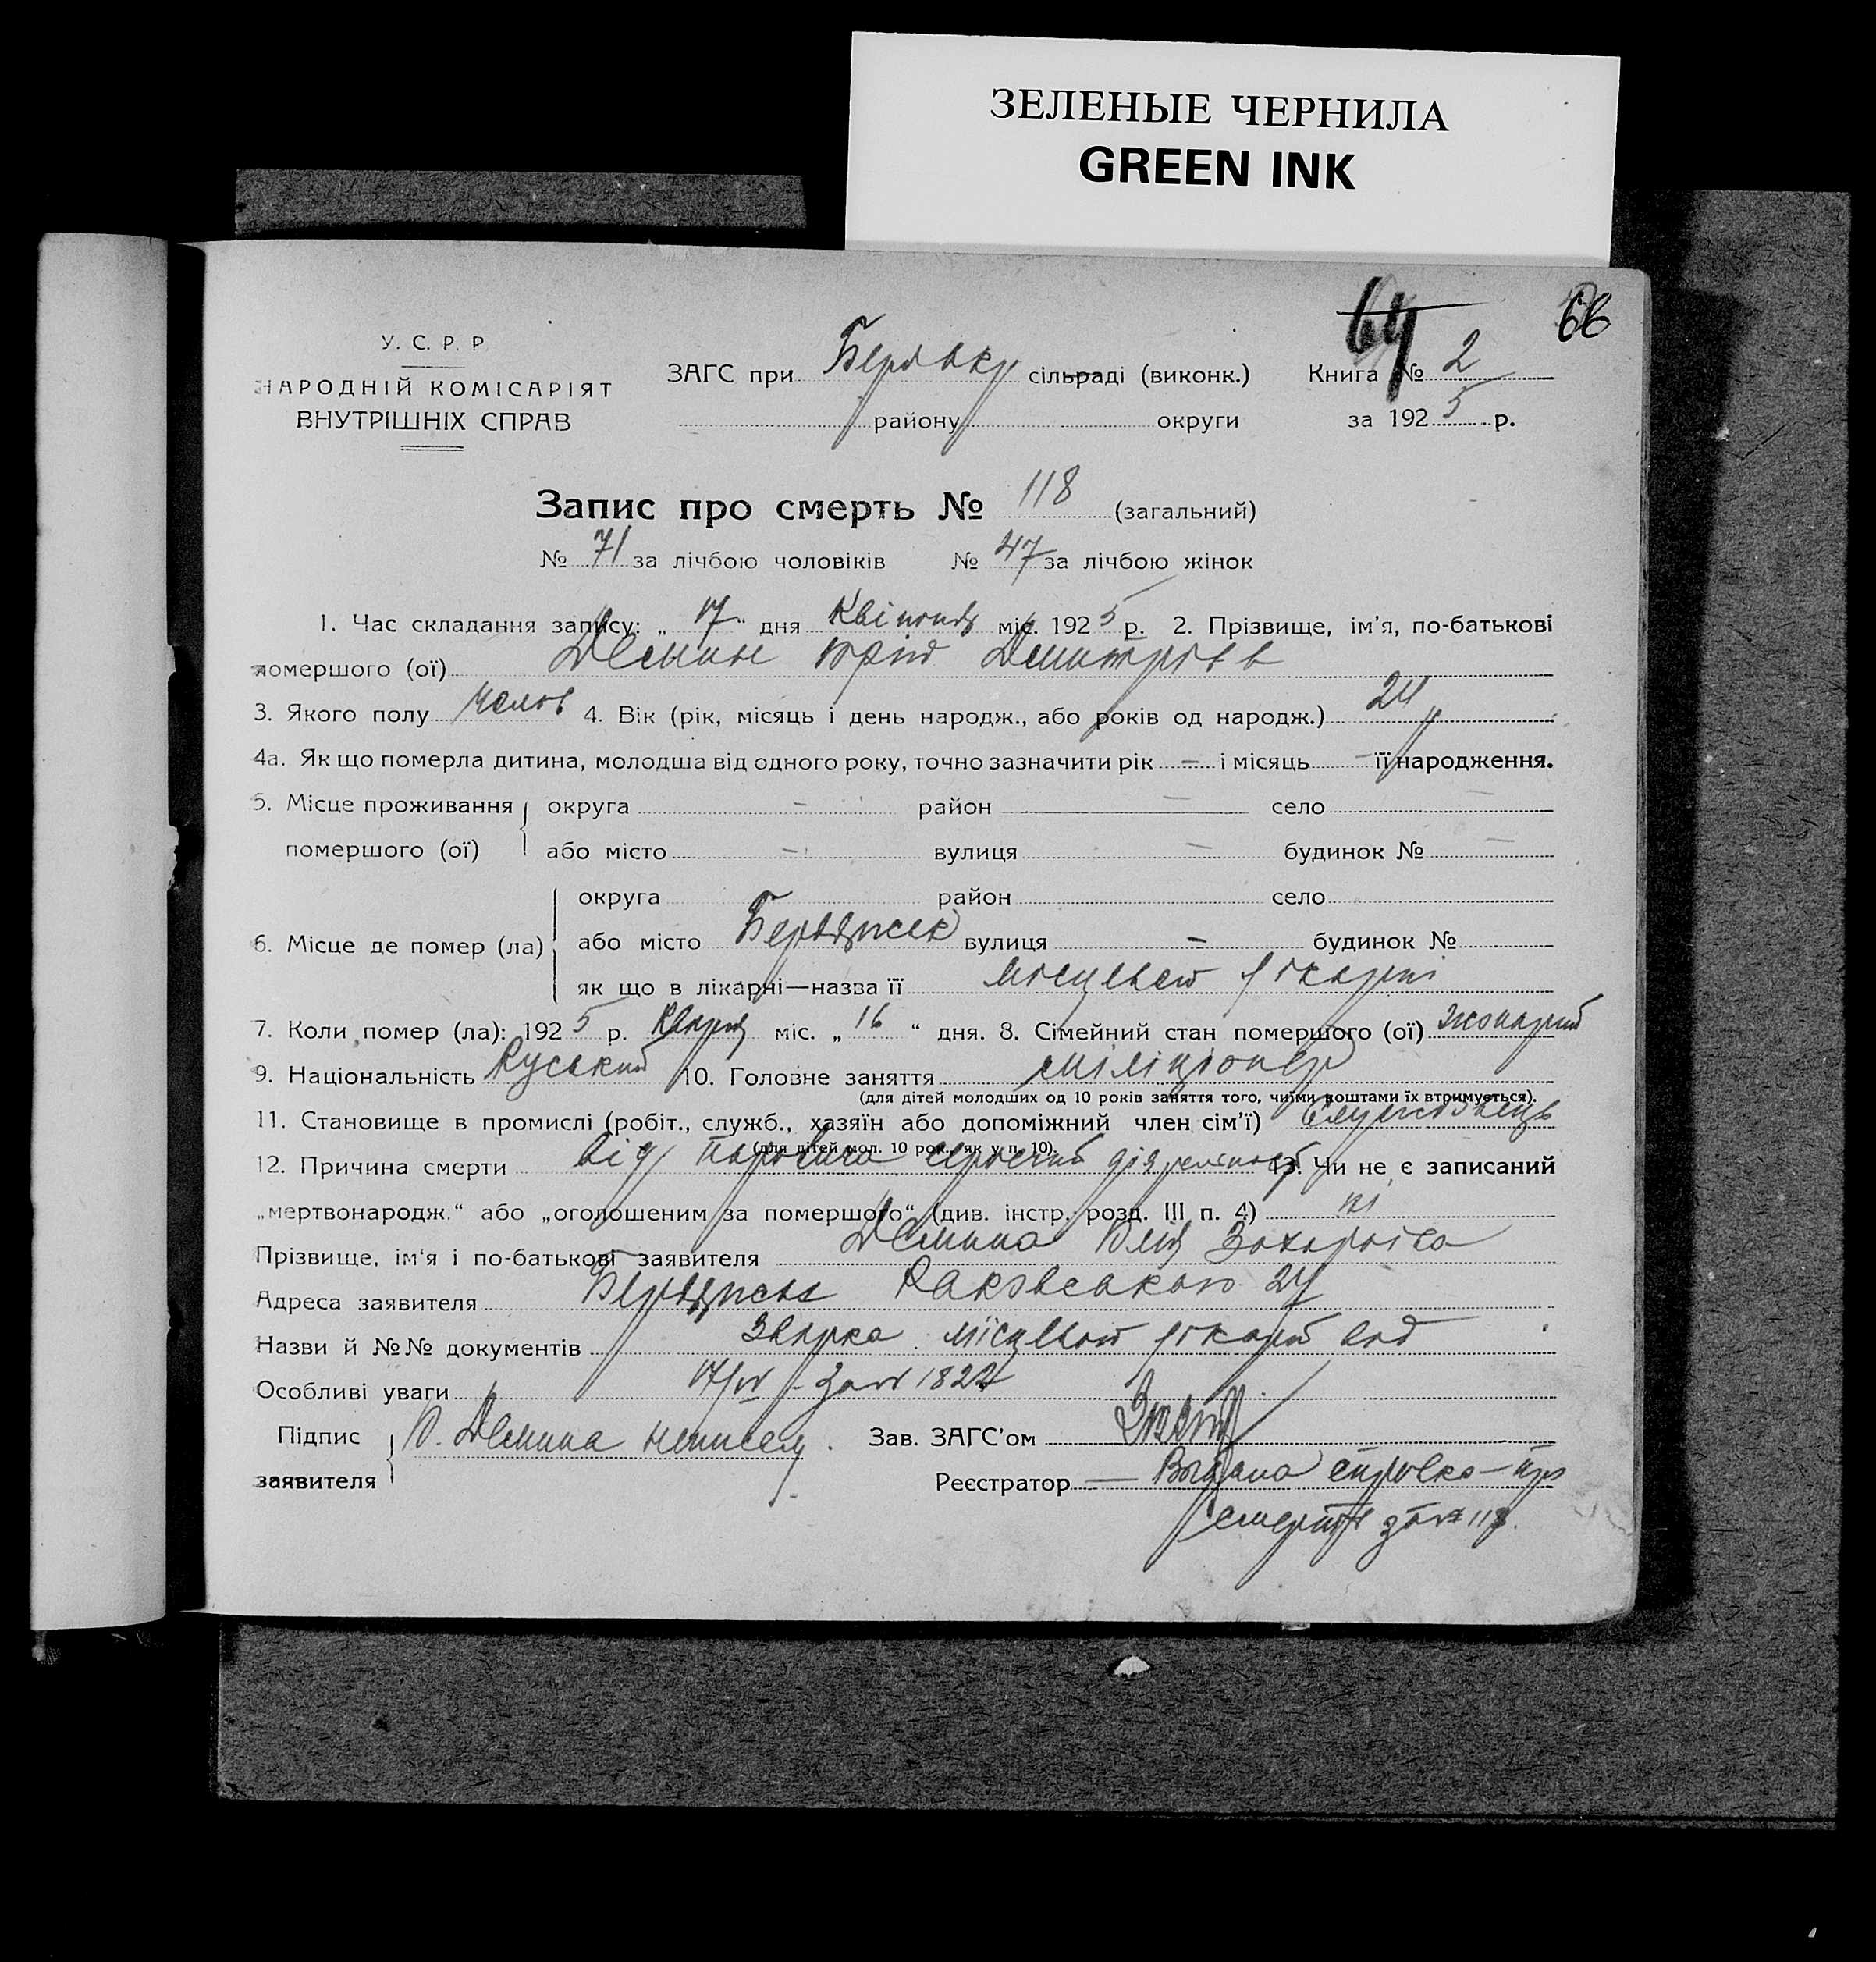 ЗЕЛЕНЫЕ ЧЕРНИЛА
GREEN INK
64 66
У. С. Р. Р.
НАРОДНІЙ КОМІСАРІЯТ
ВНУТРІШНІХ СПРАВ
ЗАГС при сільраді (виконк.) Книга № 2
району округи за 1925 р.
Запис про смерть № 118 (загальний)
№ 71 за лічбою чоловіків № 47 за лічбою жінок
1. Час складання запису: „ 17 “ дня Квітня міс. 1925 р. 2. Прізвище, ім'я, по-батькові
помершого (ої) Демин Юрій Дмитров
3. Якого полу чолов 4. Вік (рік, місяць і день народж., або років од народж.) 24 р
4а. Як що померла дитина, молодша від одного року, точно зазначити рік – і місяць – її народження.
5. Місце проживання округа – район – село –
помершого (ої) або місто – вулиця – будинок № –
округа район село
6. Місце де помер (ла) або місто Бердичев вулиця – будинок №
як що в лікарні—назва її місцевій лікарні
7. Коли помер (ла): 1925 р. Квітня міс. „ 16 “ дня. 8. Сімейний стан помершого (ої) жонатий
9. Національність Руський 10. Головне заняття міліціонер
(для дітей молодших од 10 років заняття того, чиїми коштами їх втримується).
11. Становище в промислі (робіт., служб., хазяїн або допоміжний член сім'ї) Службовець
(для дітей мол. 10 рок., як у п. 10).
12. Причина смерти від серцевий діяльності 13. Чи не є записаний
„мертвонародж.“ або „оголошеним за помершого“ (див. інстр. розд. III п. 4) ні
Прізвище, ім'я і по-батькові заявителя Демина Юлія Захаровна
Адреса заявителя Бердичев Раковського 24
Назви й №№ документів місцевой лікарні від
Особливі уваги 17/IV за № 1822
Підпис Ю. Демина Зав. ЗАГС'ом
заявителя Реєстратор — Выдана справка – про
смерть за № 118.